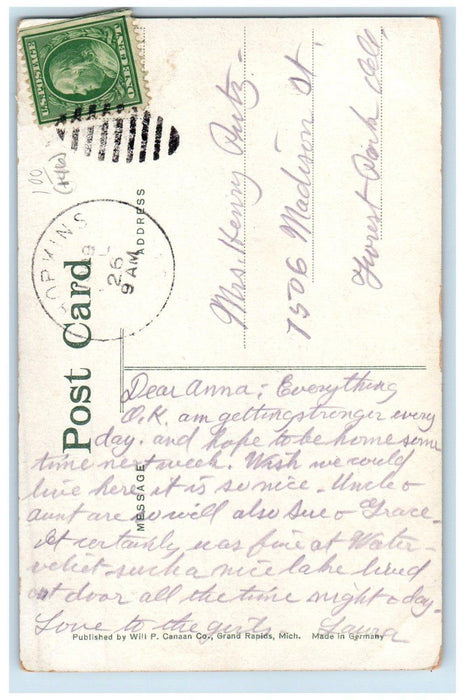 U.S. POSTAGE
ONE CENT
100
HOPKINS
26
9 AM
Post Card
ADDRESS
Mrs. Henry Rutz -
7506 Madison St.
Forest Park Ill.
MESSAGE
Dear Anna; Everything
O.K. am getting stronger every
day. and hope to be home some
time next week. Wish we could
live here it is so nice - Uncle &
aunt are so well also Sue & Grace -
It certainly was fine at Water -
veliet - such a nice lake lived
out door all the time night & day -
Love to the girls Laura
Published by Will P. Canaan Co., Grand Rapids, Mich. Made in Germany